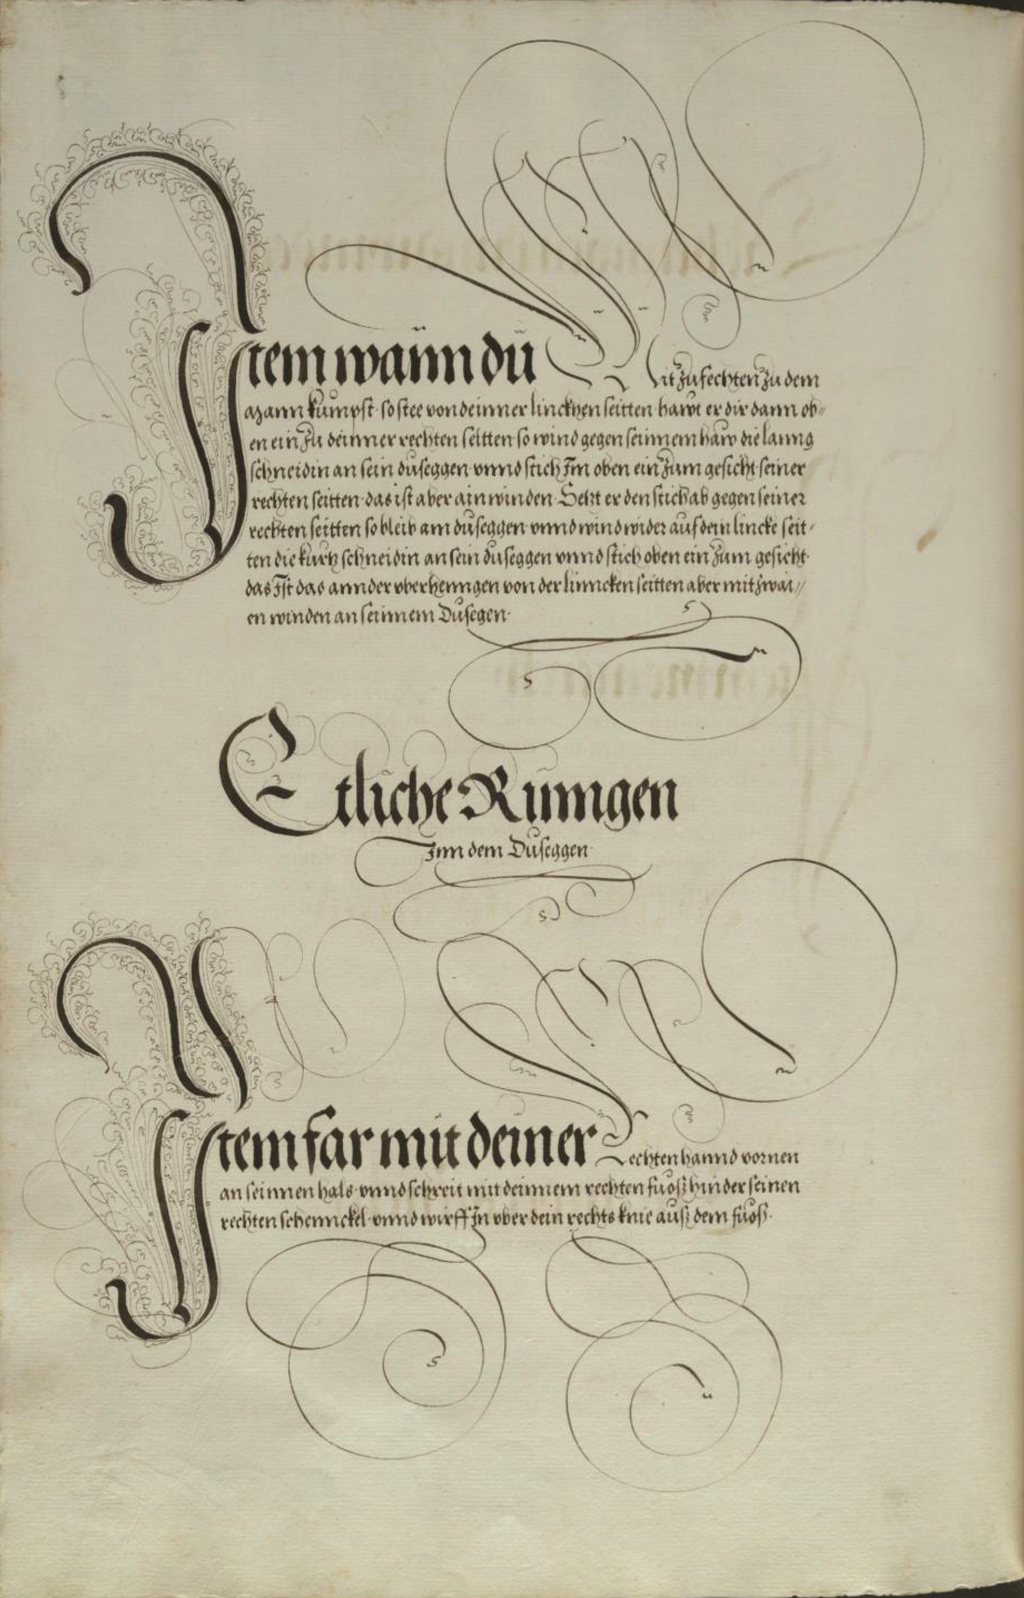 Item wann du Mit zufechten zu dem
Mann kumpst so stee von deinner linckhen seitten hawt er dir dann ob-
en ein zu deinner rechten seitten so wind gegen seinnem haw die lanng
schneidin an sein duseggen vnnd stich Im oben ein zum gesicht seiner
rechten seitten das ist aber ain winden Setzt er den stich ab gegen seiner
rechten seitten so bleib am duseggen vnnd wind wider auf dein lincke seit-
ten die kurtz schneidin an sein duseggen vnnd stich oben ein zum gesicht
das Ist das annder vberhenngen von der linncken seitten aber mit zwai-
en winden an seinnem Dusegen
Etliche Rinngen
Inn dem Duseggen
Item far mit deiner Rechten hannd vornen
an seinnen hals vnnd schreit mit deinnem rechten fuosz hinder seinen
rechten schennckel vnnd wirff In vber dein rechts knie ausz dem fuosz